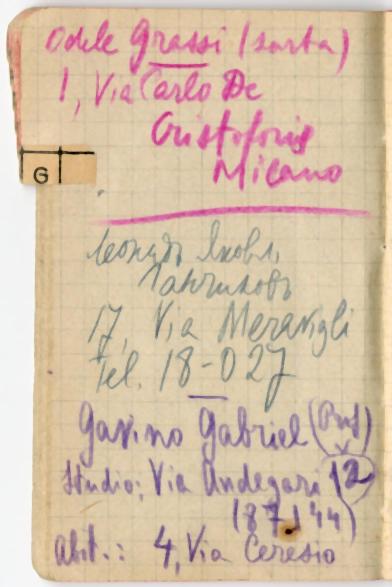 Odele Grassi (sarta)
1, Via Carlo De
Cristoforis
Milano
G
Леонидъ Яковл.
Ганчиковъ
17, Via Meravigli
Tel. 18-027
Gavino Gabriel (Prof)
Studio: Via Andegari 12
(87144)
Abit.: 4, Via Ceresio